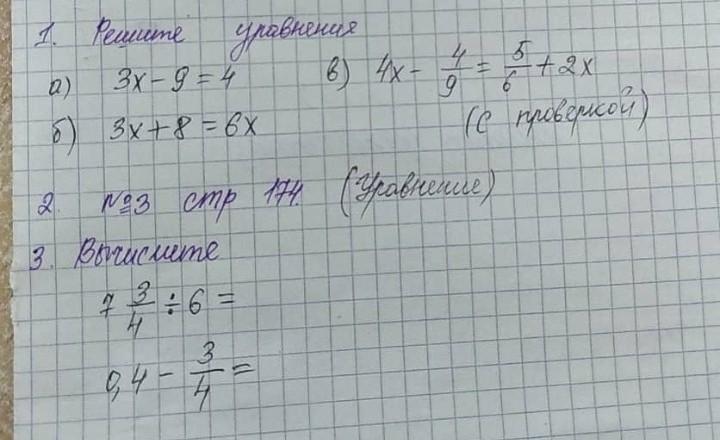 1. Решите уравнения
а) 3х - 9 = 4
в) 4х - 4/9 = 5/6 + 2х
б) 3х + 8 = 6х
(с проверкой)
2. №3 стр 174. (Уравнение)
3. Вычислите
7 3/4 ÷ 6 =
0,4 - 3/4 =